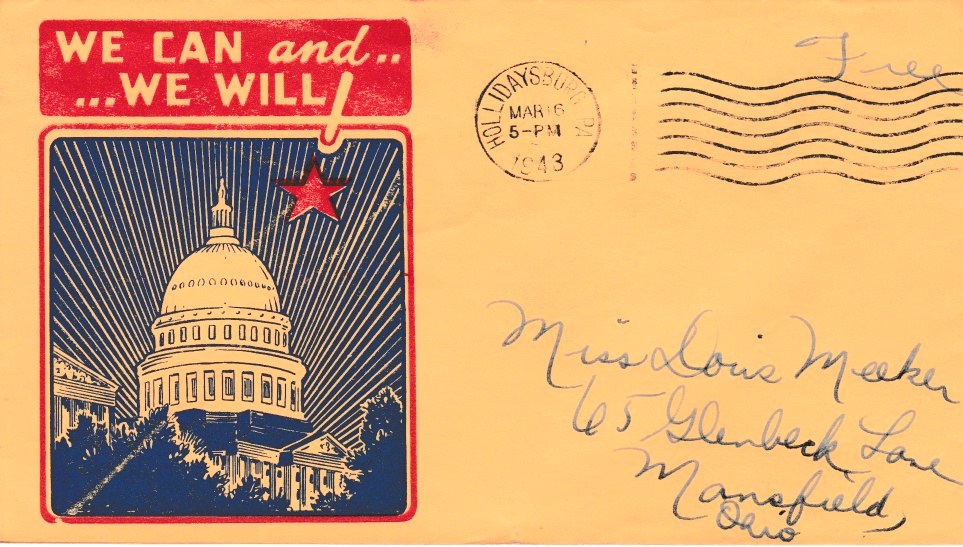 WE CAN and..
...WE WILL!
HOLLIDAYSBURG PA
MAR 16
5-PM
1943
Free
Miss Lois Meeker
65 Glenbeck Lane
Mansfield,
Ohio